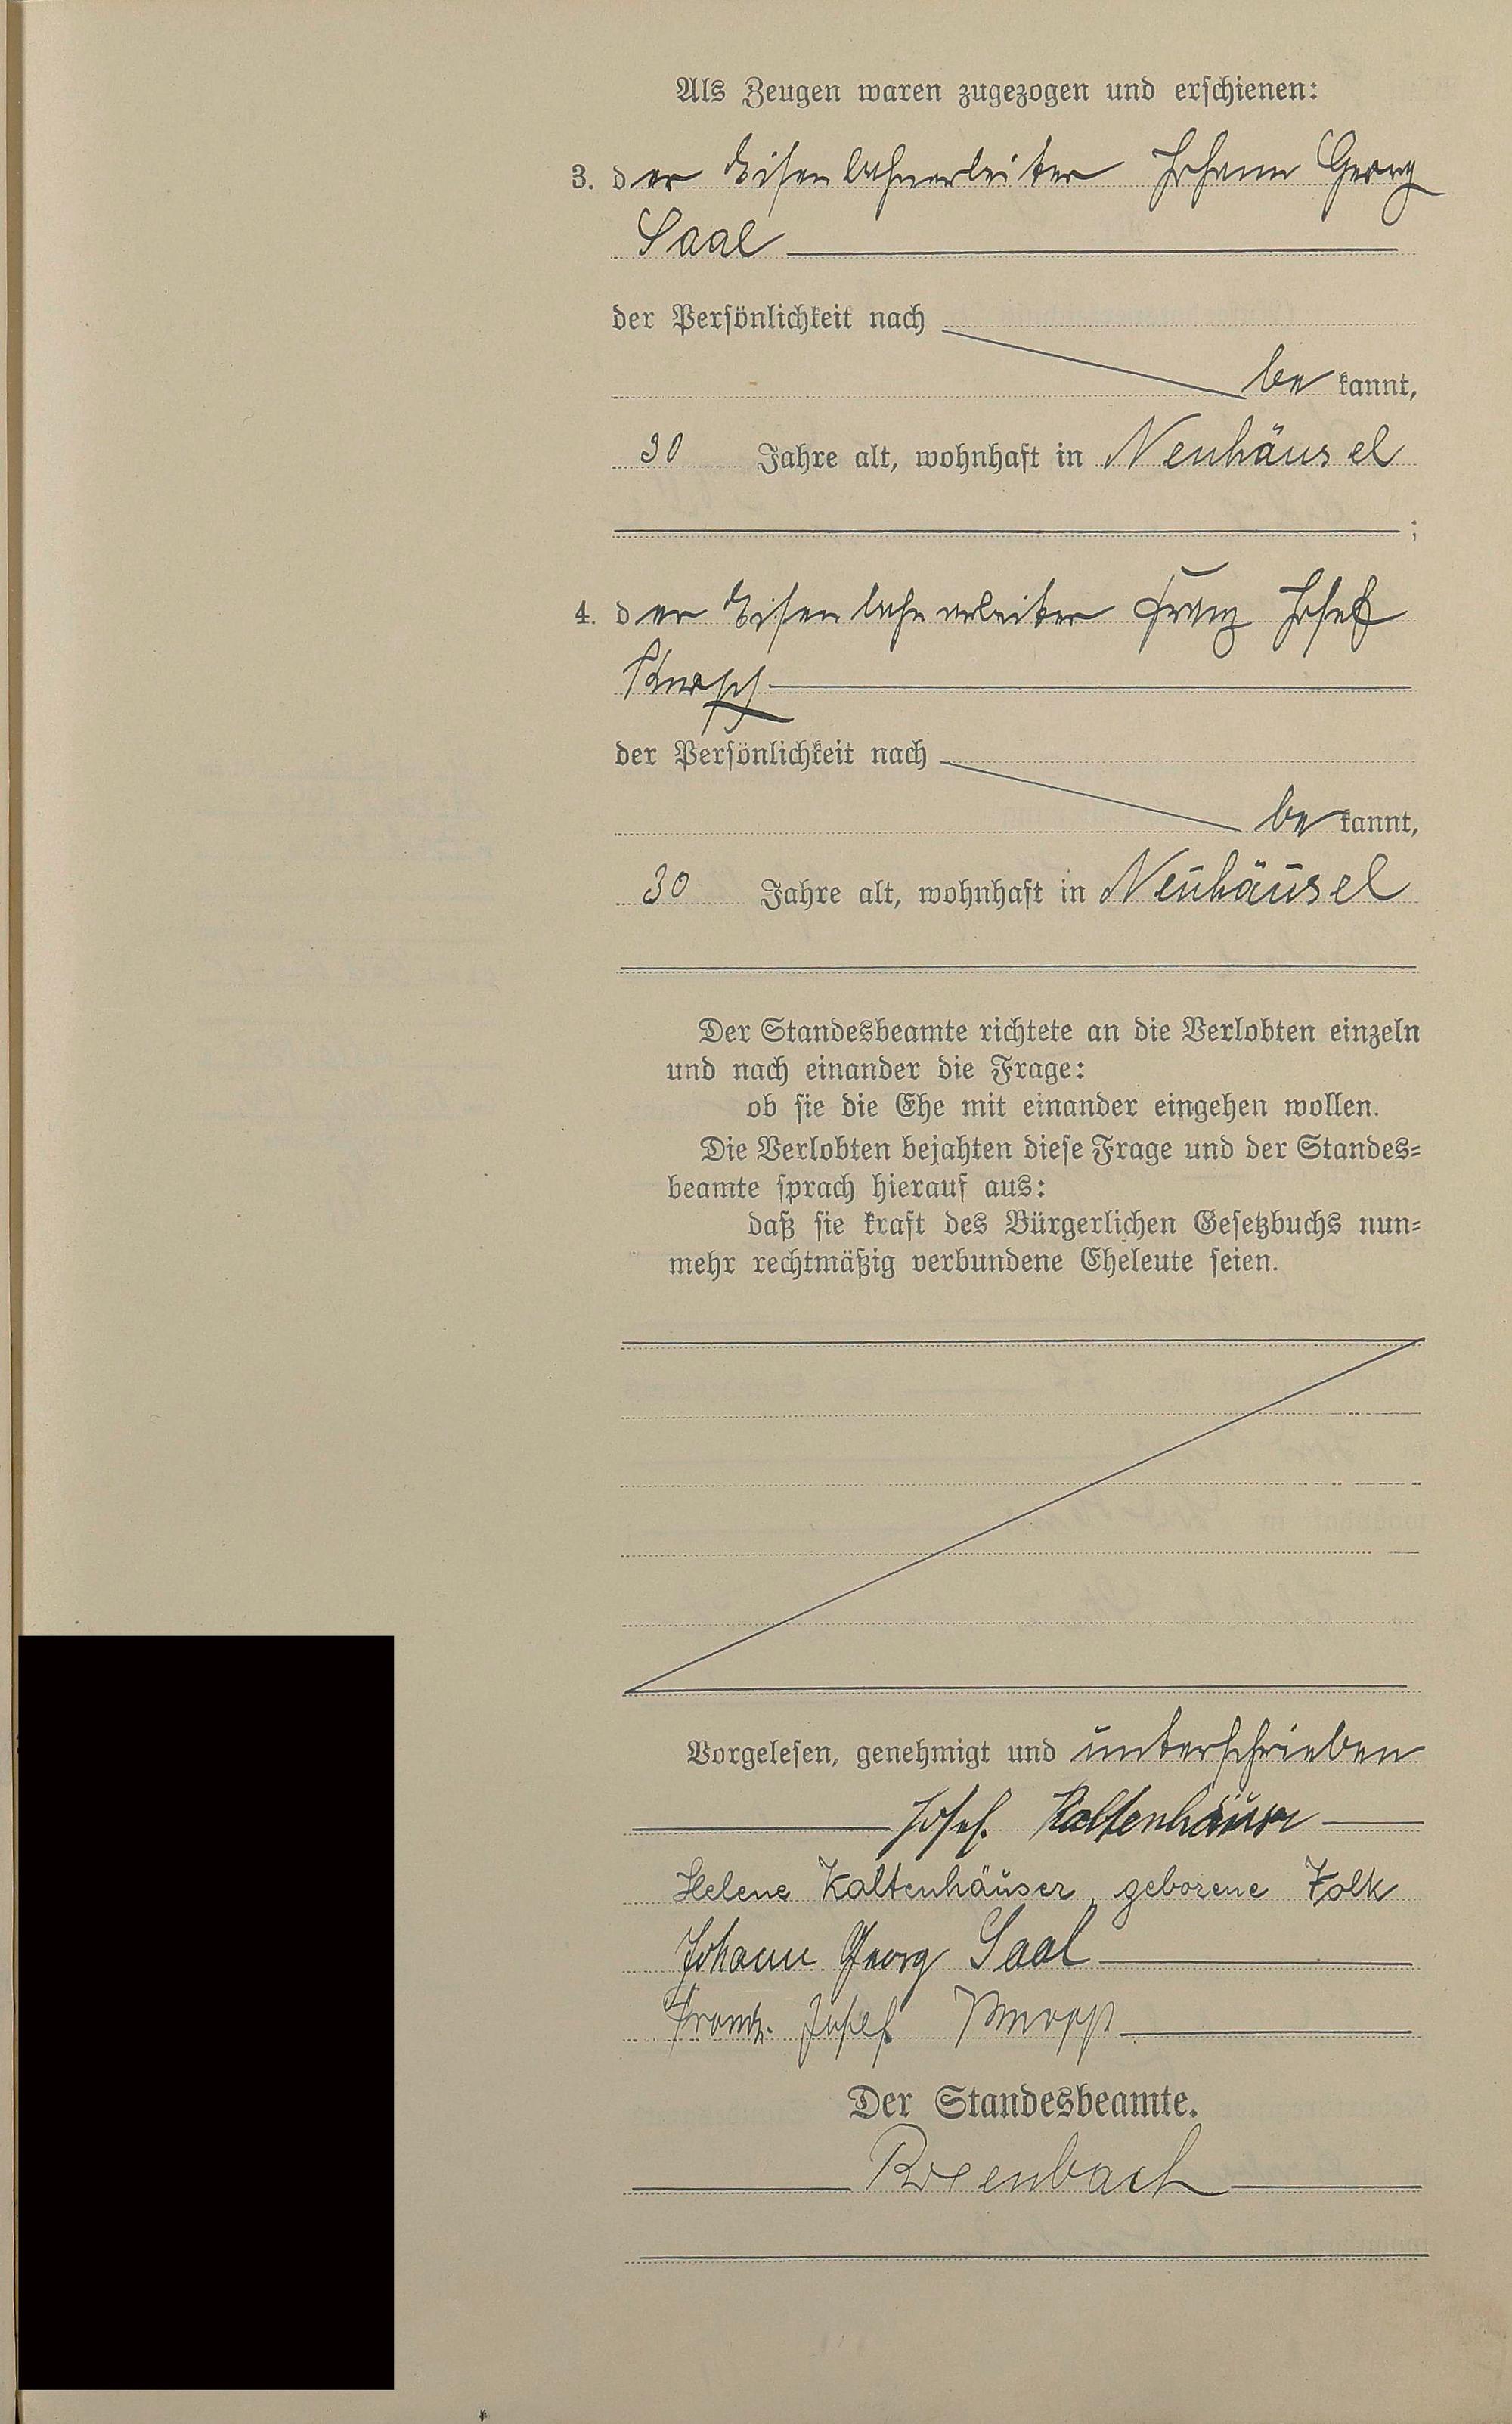 Als Zeugen waren zugezogen und erschienen:
3. der Eisenbahnarbeiter Johann Georg
Saal
der Persönlichkeit nach
be kannt,
30 Jahre alt, wohnhaft in Neuhäusel
;
4. der Eisenbahnarbeiter Franz Josef
Knopp
der Persönlichkeit nach
be kannt,
30 Jahre alt, wohnhaft in Neuhäusel
Der Standesbeamte richtete an die Verlobten einzeln
und nach einander die Frage:
ob sie die Ehe mit einander eingehen wollen.
Die Verlobten bejahten diese Frage und der Standes=
beamte sprach hierauf aus:
daß sie kraft des Bürgerlichen Gesetzbuchs nun=
mehr rechtmäßig verbundene Eheleute seien.
Vorgelesen, genehmigt und unterschrieben
Josef Kaltenhäuser
Helene Kaltenhäuser, geborene Volk
Johann Georg Saal
Franz Josef Knopp
Der Standesbeamte.